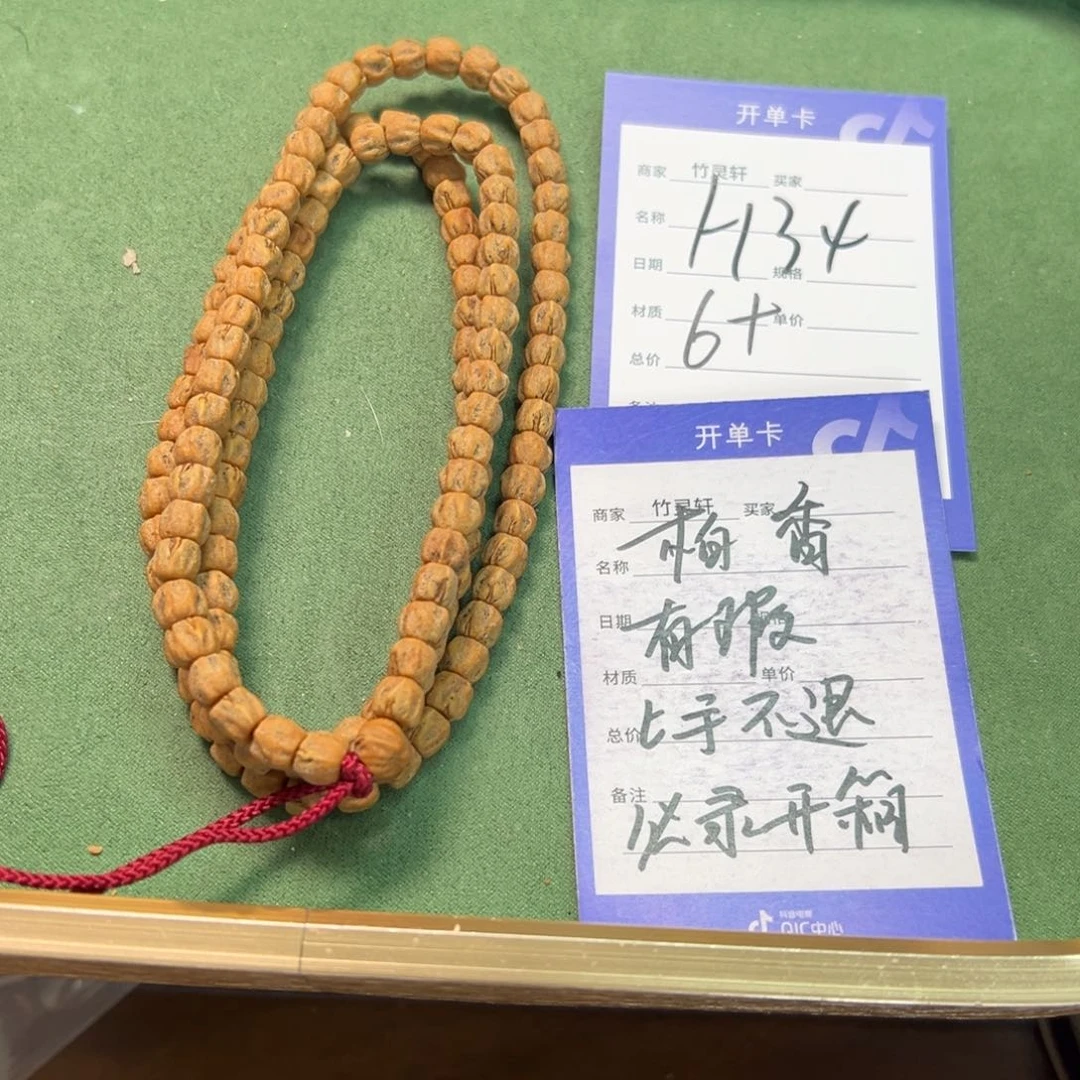 开单卡
商家 竹灵轩 买家
名称 H34
日期 规格
材质 6+ 单价
总价
开单卡
商家 竹灵轩 买家
柏香
名称
日期 有瑕
材质 单价
总价 上手不退
备注
必录开箱
抖音电商
QIC中心